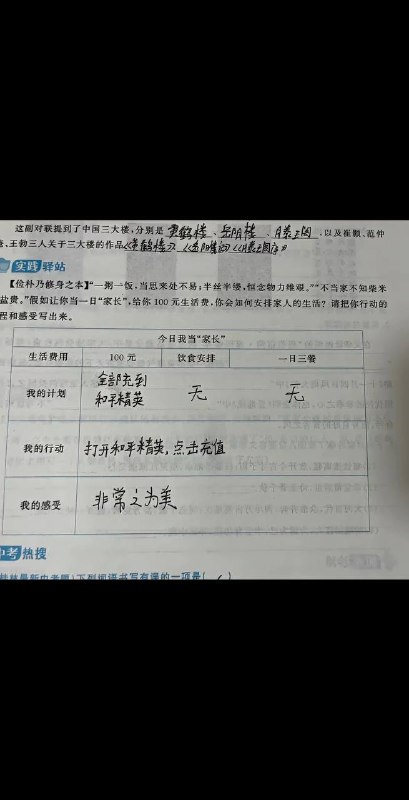 这副对联提到了中国三大楼,分别是 黄鹤楼、岳阳楼、滕王阁,以及崔颢、范仲
、王勃三人关于三大楼的作品《黄鹤楼》《岳阳楼记》《滕王阁序》
实践驿站
【俭朴乃修身之本】“一粥一饭,当思来处不易;半丝半缕,恒念物力维艰。”“不当家不知柴米
盐贵。”假如让你当一日“家长”,给你 100 元生活费,你会如何安排家人的生活?请把你行动的
程和感受写出来。
今日我当“家长”
生活费用 100 元 饮食安排 一日三餐
我的计划 全部充到 无 无
和平精英
我的行动 打开和平精英,点击充值
我的感受 非常之为美
中考热搜
最新中考题)下列词语书写有误的一项是(